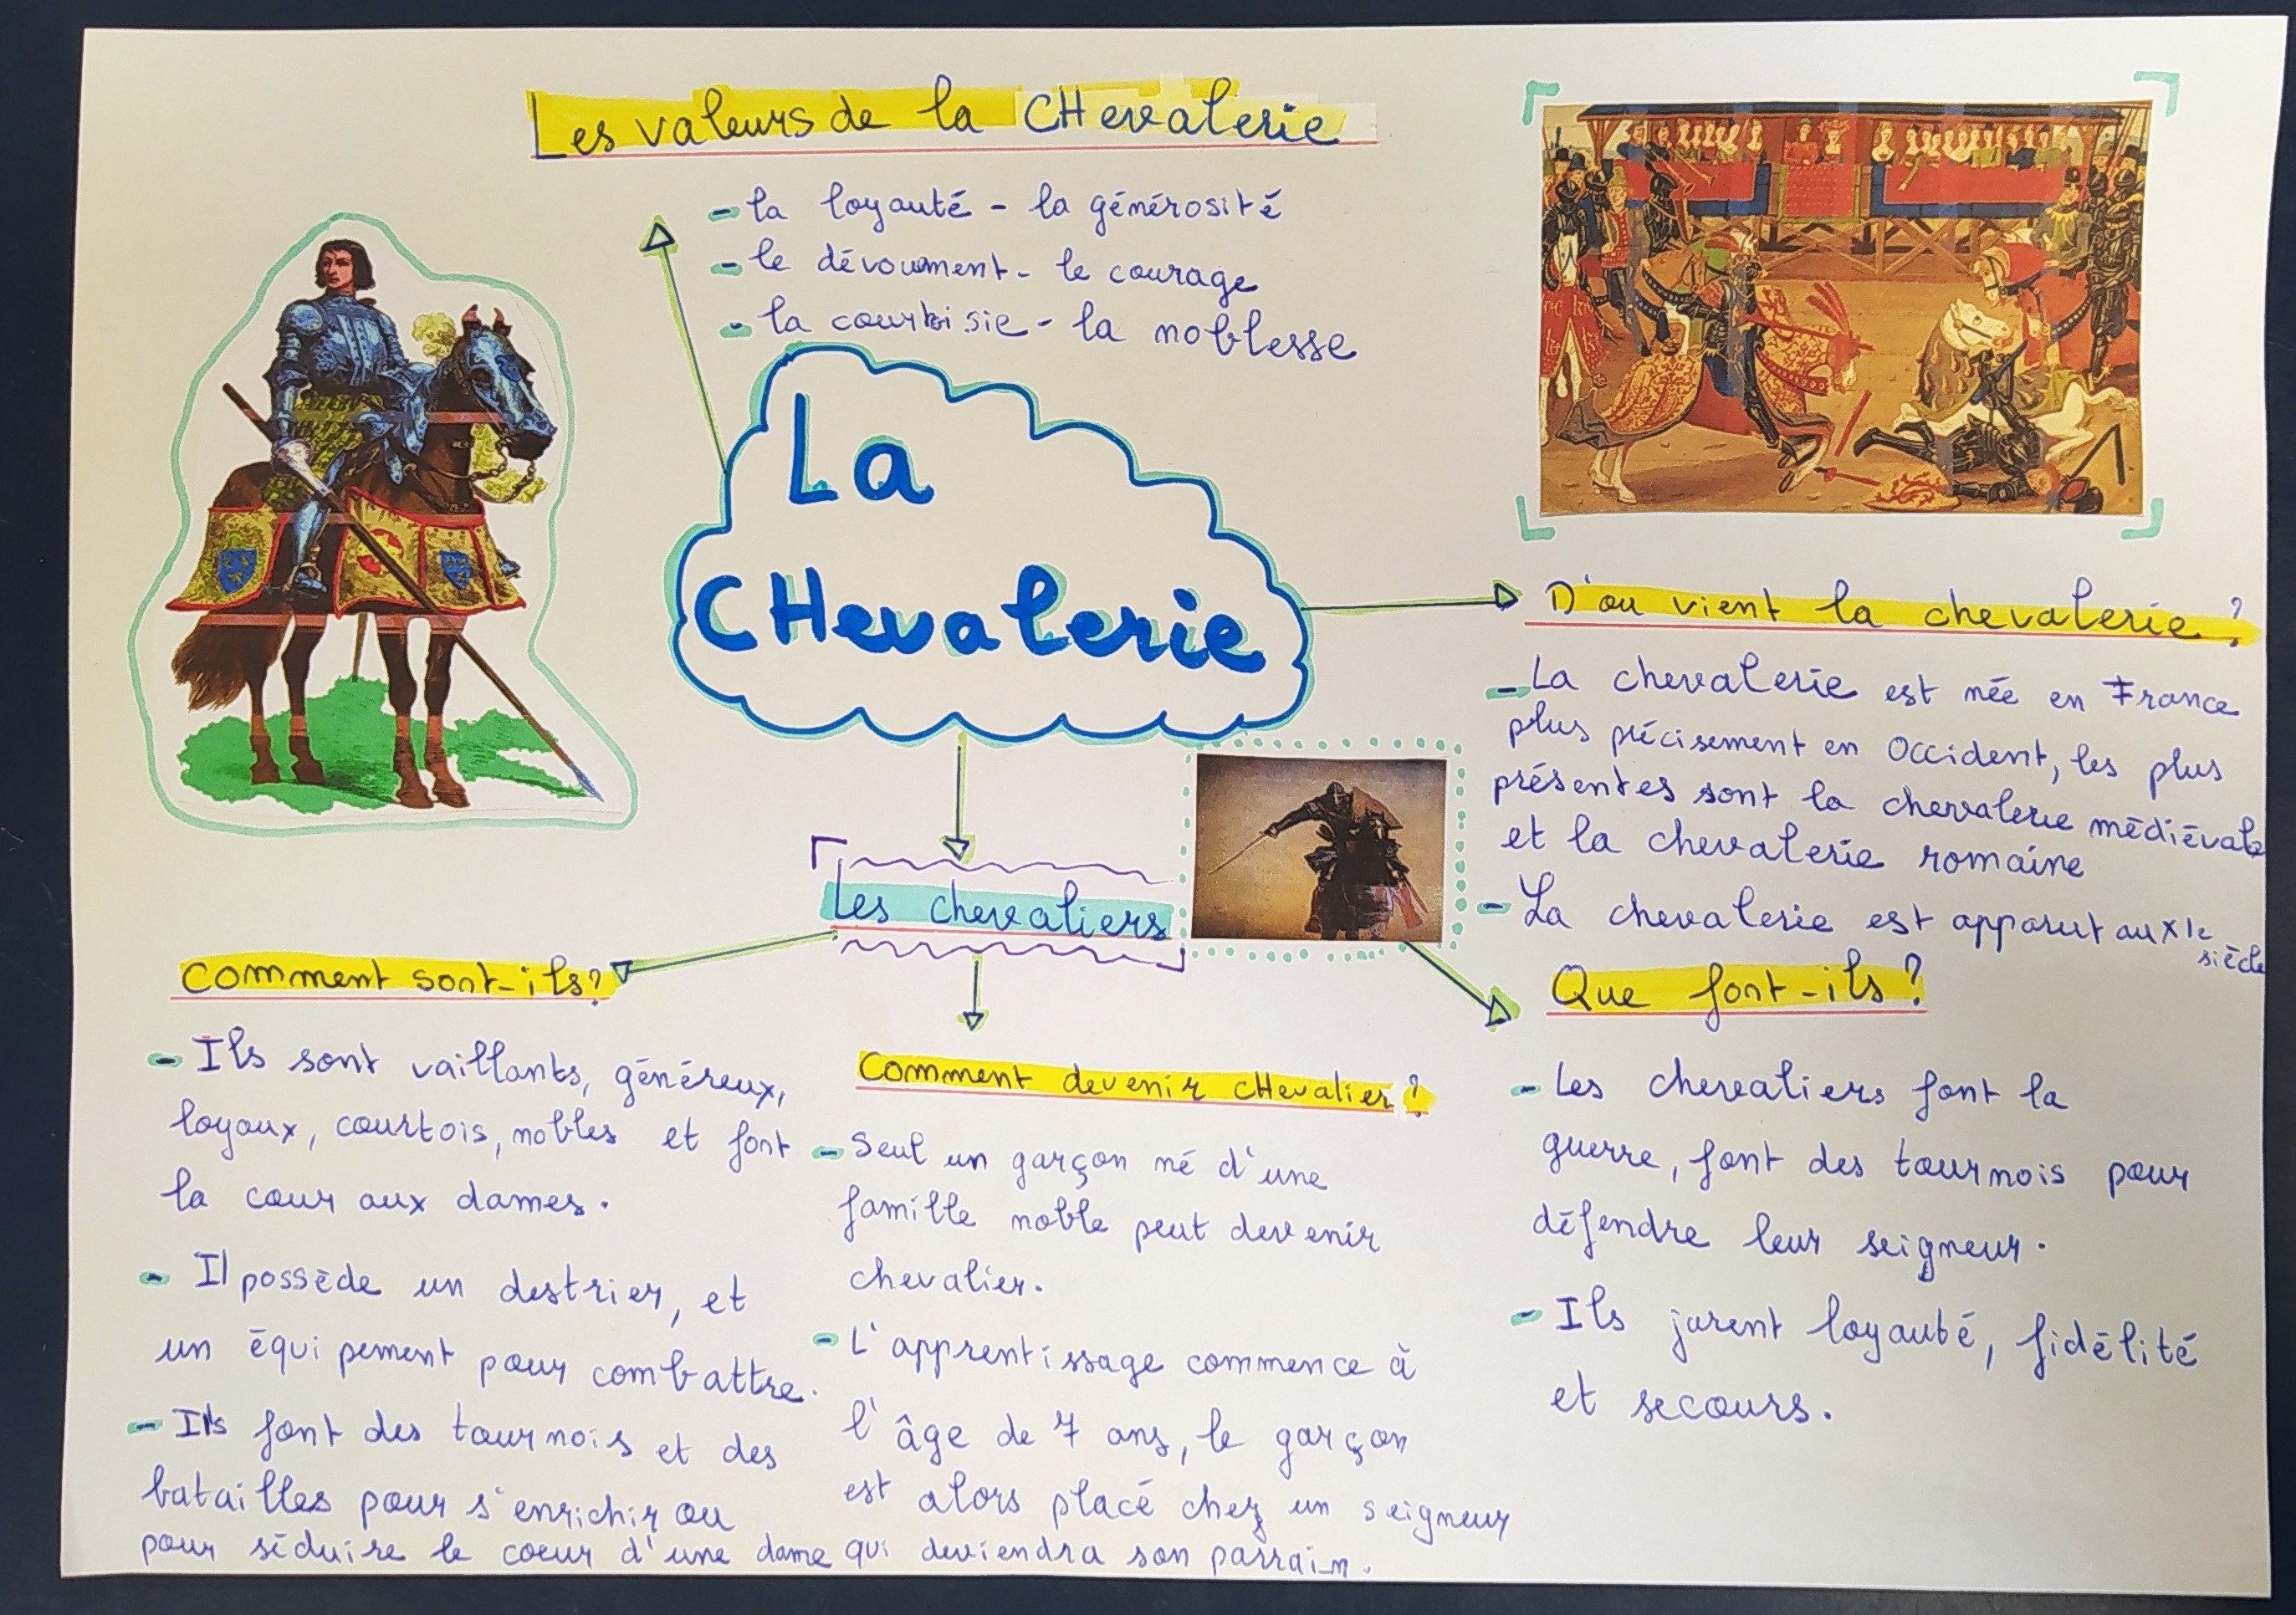 Les valeurs de la CHevalerie
- la loyauté - la générosité
- le dévoument - le courage
- la courtoisie - la noblesse
La
CHevalerie
D'ou vient la chevalerie ?
- La chevalerie est née en France
plus précisement en Occident, les plus
présentes sont la chevalerie médiévale
et la chevalerie romaine
- La chevalerie est apparut au XIe
siècle
Les chevaliers
Comment sont-ils ?
- Ils sont vaillants, généreux,
loyaux, courtois, nobles et font
la cour aux dames.
- Il possède un destrier, et
un équipement pour combattre.
- Ils font des tournois et des
batailles pour s'enrichir ou
pour séduire le coeur d'une dame
Comment devenir CHevalier ?
- Seul un garçon né d'une
famille noble peut devenir
chevalier.
- L'apprentissage commence à
l'âge de 7 ans, le garçon
est alors placé chez un seigneur
qui deviendra son parrain.
Que font-ils ?
- Les chevaliers font la
guerre, font des tournois pour
défendre leur seigneur.
- Ils jurent loyauté, fidélité
et secours.